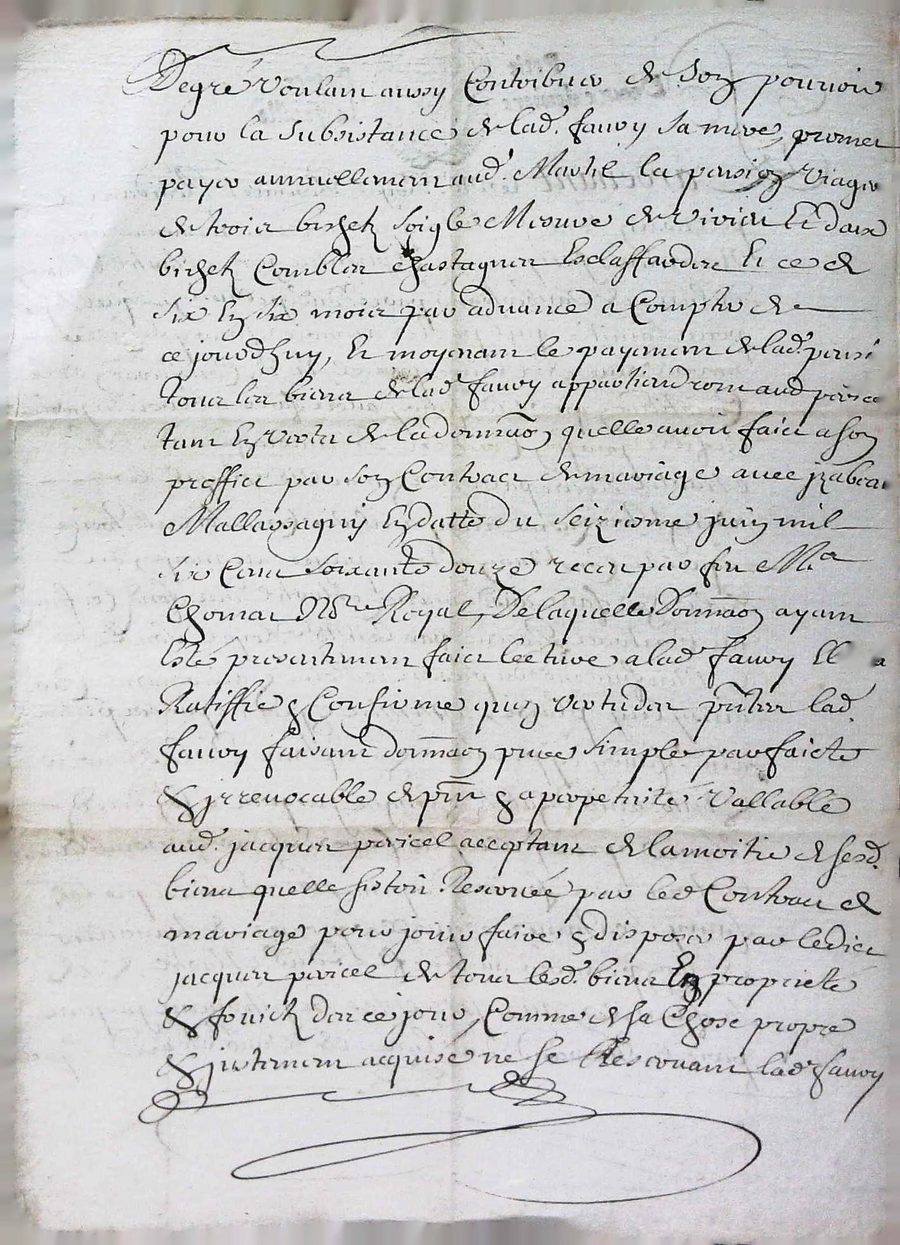 Degré voulant aussy Contribuer de son pouvoir
pour la subsistance de lad. favry sa mere, promet
payer annuellement aud. Martil la pension viagere
de trois bichetz soigle Mesure de et deux
bichetz Combles chastagnes Esclaffardes Et ce de
six En six mois par advance a Compter de
ce jourdhuy, Et moyenant le payement de lad. pensi
tous les biens de lad. favry appartiendront aud perice
tant En vertu de la donnaõn quelle avoit faict a son
proffict par son Contract de mariage avec jzabeau
Mallassagny En datte du seiziesme juin mil
six Cens soixante douze receu par feu Me
Thomas Nore Royal, De laquelle Donnaõn ayant
Esté presentement faict lecture a lad favry Ell a
Ratiffie & Confirme qu'en vertu des pñtes lad.
favry faisant donnaõn pure simple parfaicte
& jrrevocable de pñt & a perpetuité Vallable
aud. jacques pericel acceptant de la moitie de sesd.
biens quelle sestoit Reservée par led Contract de
mariage pour jouir faire & disposer par ledict
jacques pericel de tous lesd. biens En proprieté
& fruictz des ce jour, Comme de sa Chose propre
& justement acquise ne se Reservant lad favry